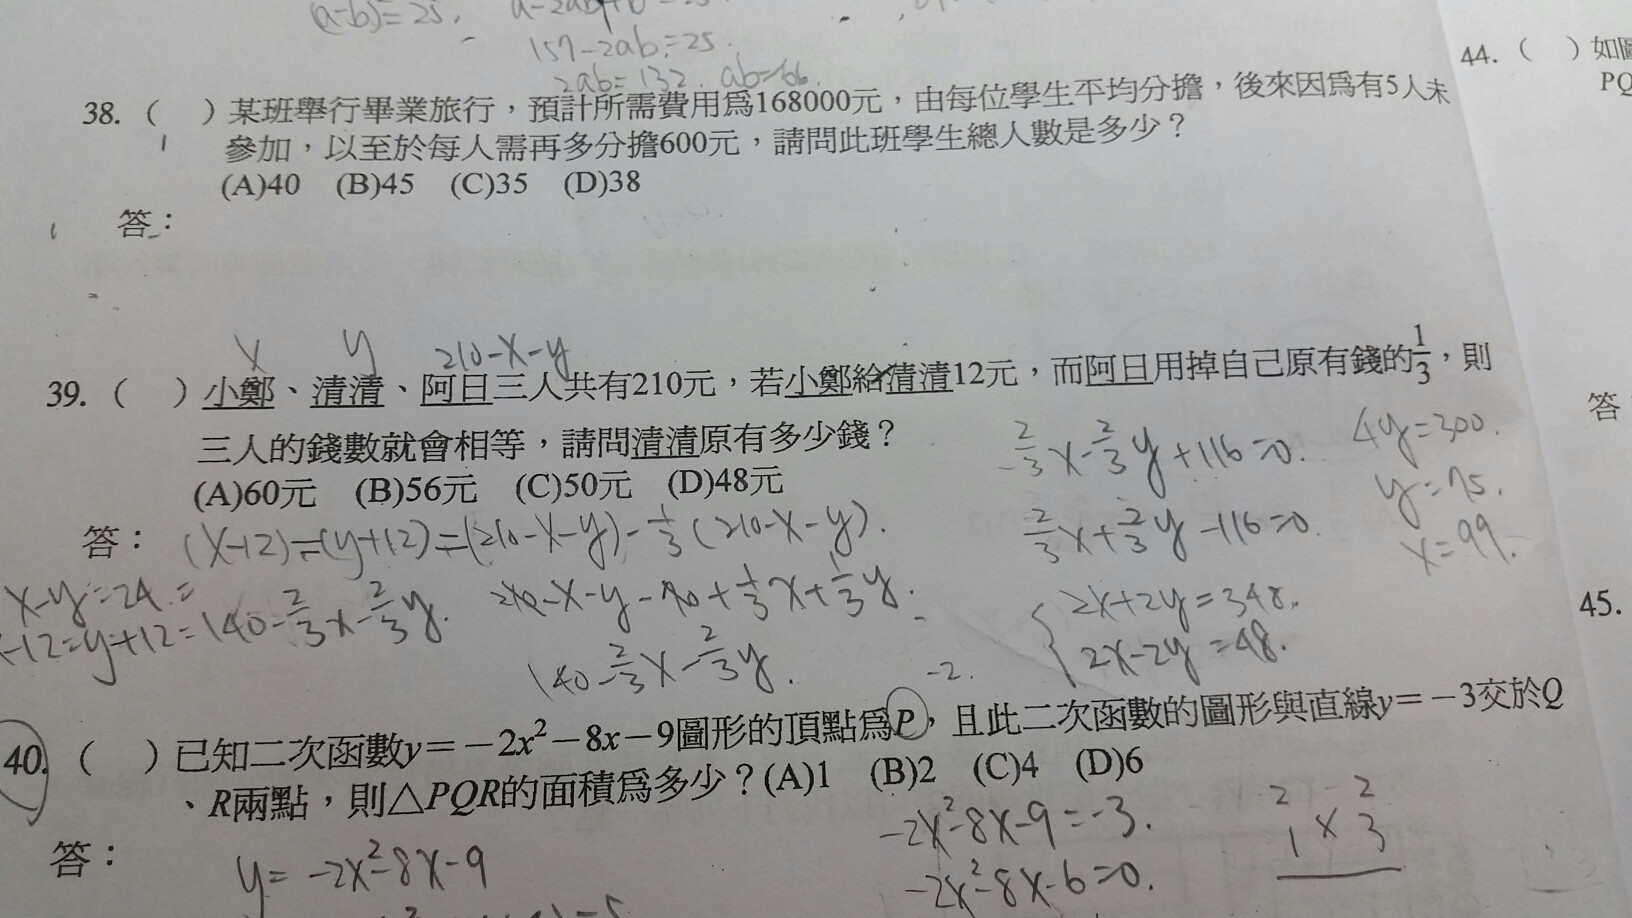 (a-b)²=25.
157-2ab=25.
2ab=132. ab=66.
38. ( ) 某班舉行畢業旅行，預計所需費用爲168000元，由每位學生平均分擔，後來因爲有5人未
參加，以至於每人需再多分擔600元，請問此班學生總人數是多少？
(A)40 (B)45 (C)35 (D)38
答：
44. ( ) 如圖
PQ
x y 210-x-y
39. ( ) 小鄭、清清、阿日三人共有210元，若小鄭給清清12元，而阿日用掉自己原有錢的1/3，則
三人的錢數就會相等，請問清清原有多少錢？
(A)60元 (B)56元 (C)50元 (D)48元
答：(x-12)=(y+12)=(210-x-y)-1/3(210-x-y).
x-y=24.=
-12=y+12=140-2/3x-2/3y.
210-x-y-70+1/3x+1/3y.
140-2/3x-2/3y.
-2/3x-2/3y+116=0.
2/3x+2/3y-116=0.
2x+2y=348.
2x-2y=48.
-2.
4y=300.
y=75.
x=99.
答
45.
40. ( ) 已知二次函數y＝－2x²－8x－9圖形的頂點爲P，且此二次函數的圖形與直線y＝－3交於Q
、R兩點，則△PQR的面積爲多少？(A)1 (B)2 (C)4 (D)6
答：
y=-2x²-8x-9
-2x²-8x-9=-3.
-2x²-8x-6=0.
2 2
1 × 3